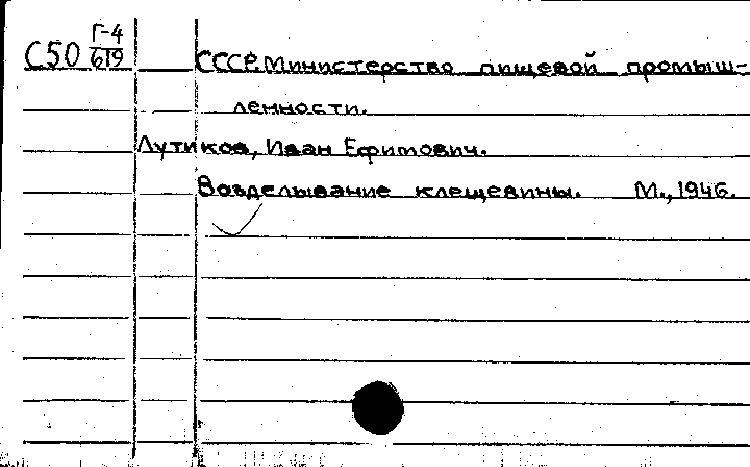 С50 Г-4/619 СССР. Министерство пищевой промыш-
ленности.
Лутиков, Иван Ефимович.
Возделывание клещевины. М., 1946.